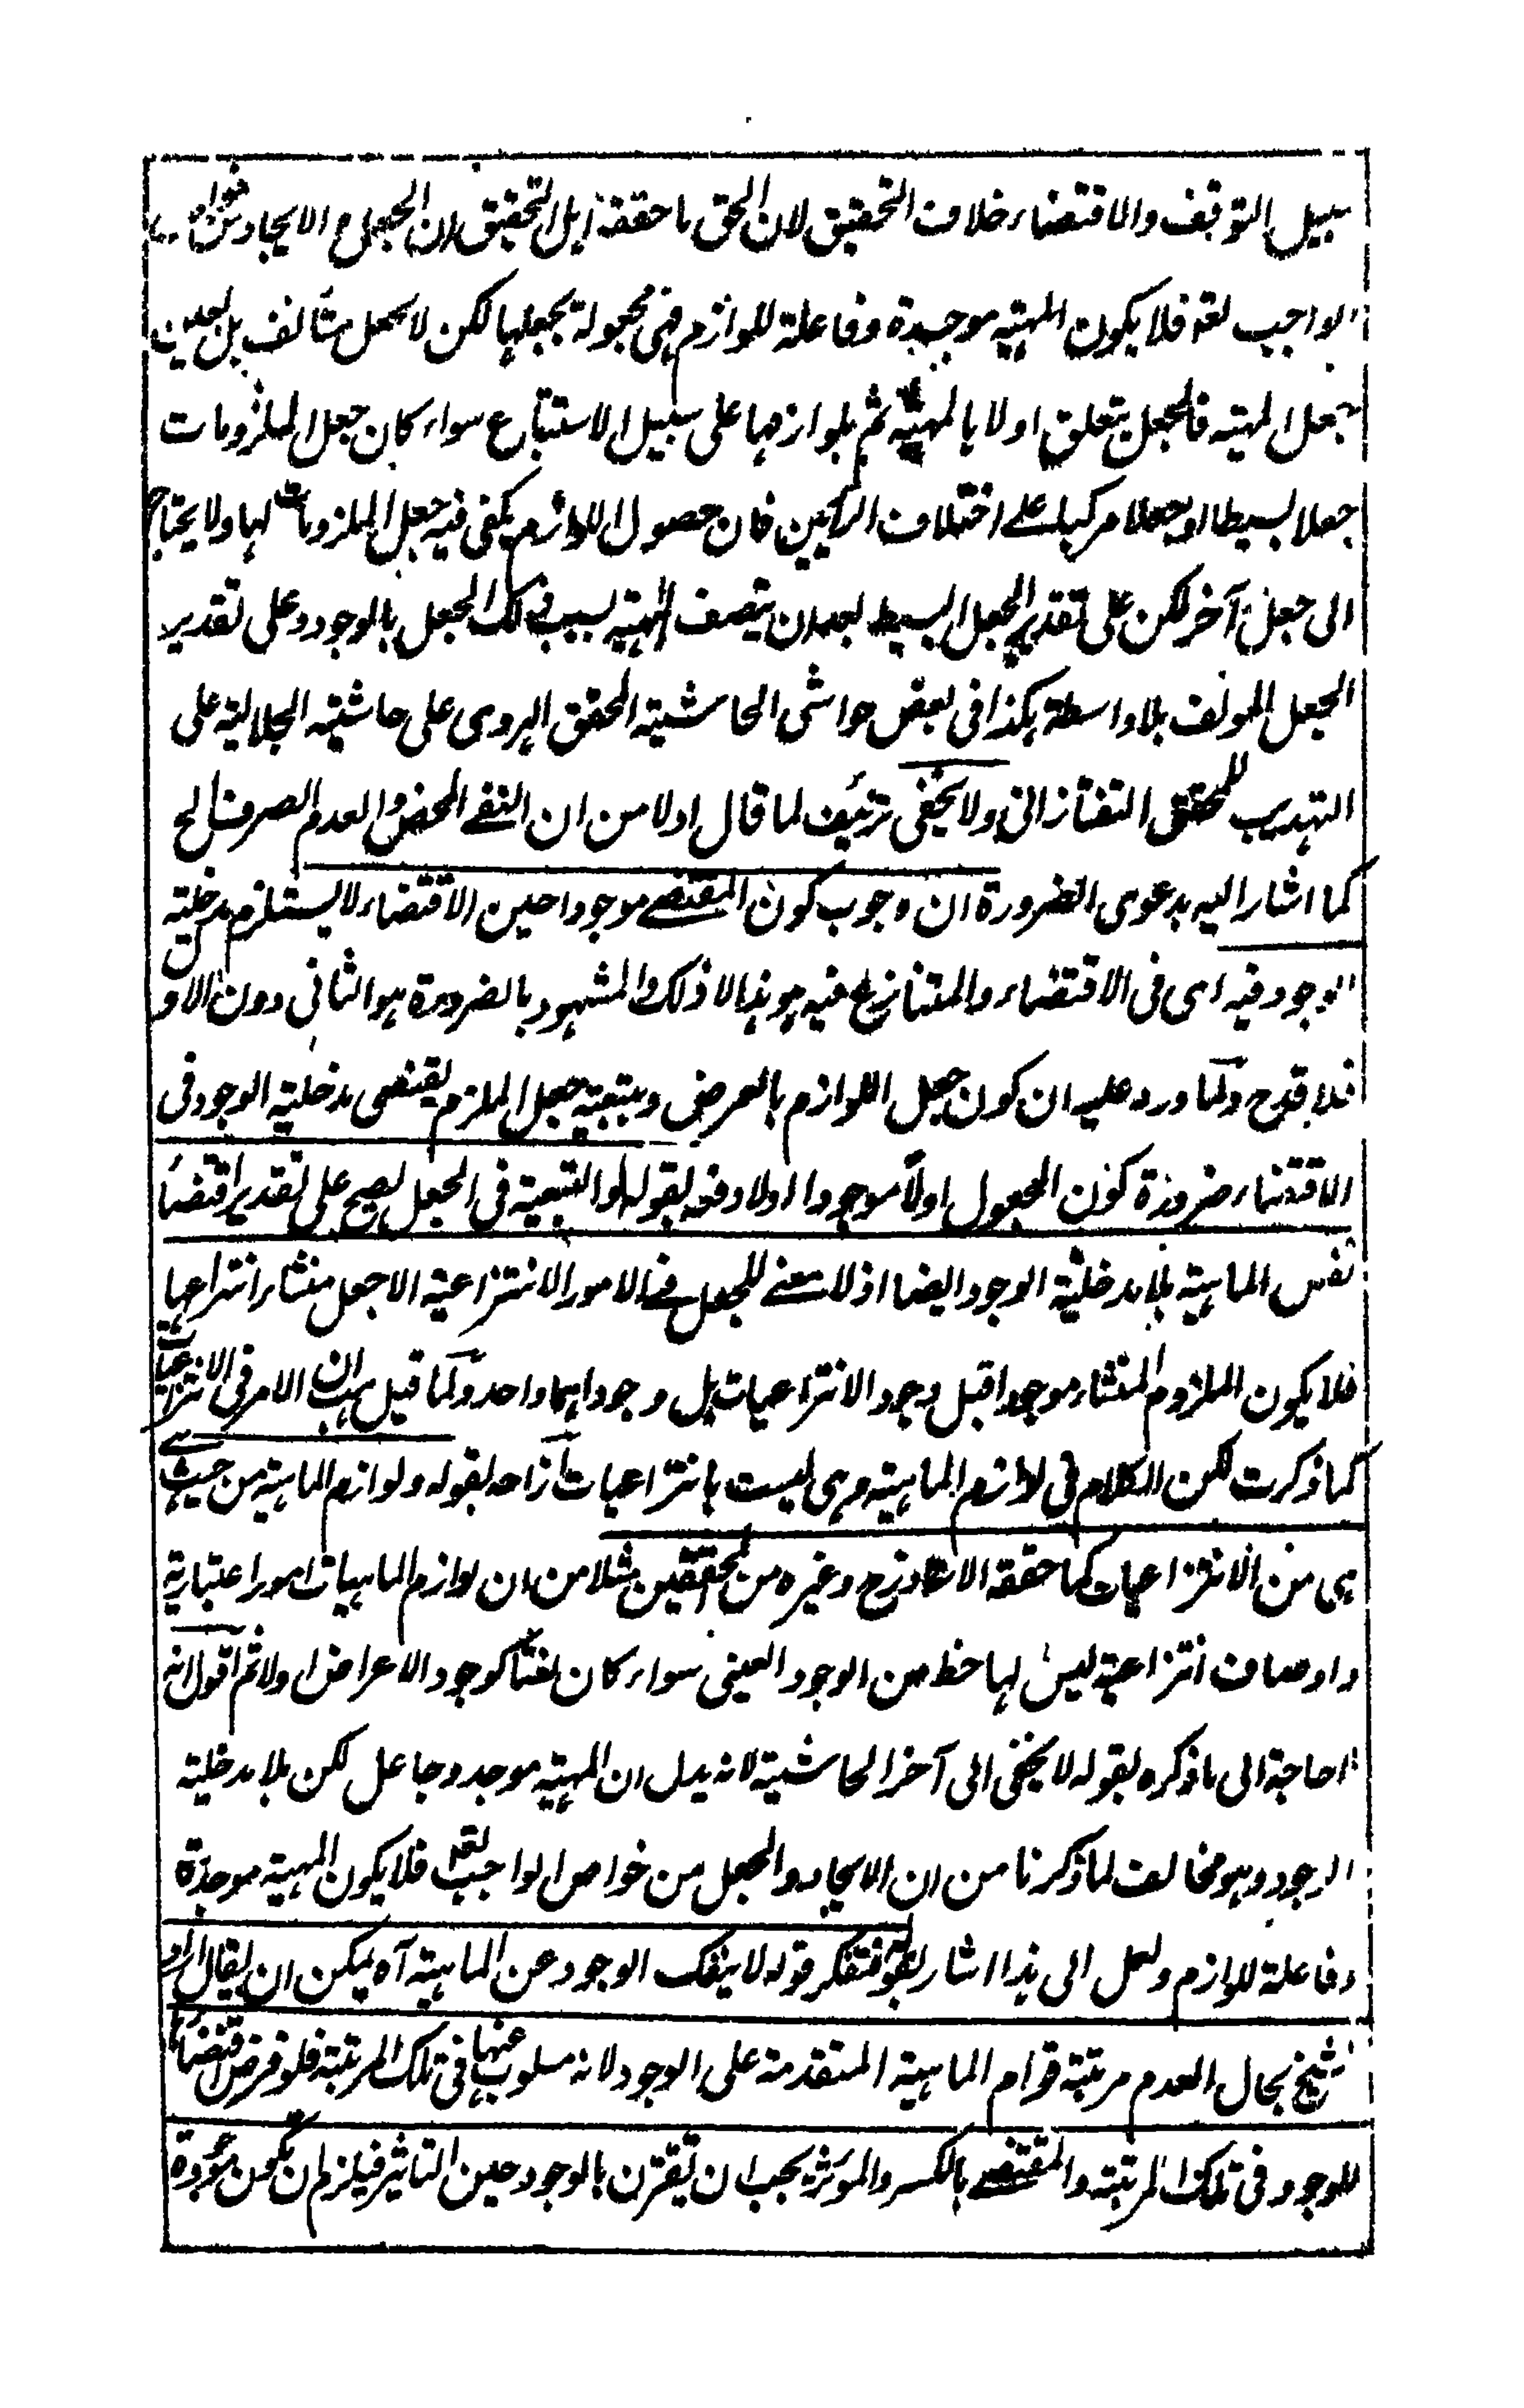 سبيل التوقف والاقتضاء خلاف التحقيق لان الحق ما حققه اهل التحقيق ان الجعل والايجاد من خواص
الواجب تعه فلا يكون المهية موجدة وفاعلة للوازم فهى مجعولة بجعلها لكن لا بجعل مستأنف بل بعين
جعل المهية فالجعل يتعلق اولا بالمهية ثم بلوازمها على سبيل الاستتباع سواء كان جعل الملزومات
جعلا بسيطا او جعلا مركبا على اختلاف الرأيين فان حصول اللوازم يكفى فيه جعل الملزومات لها ولا يحتاج
الى جعل آخر لكن على تقدير الجعل البسيط بعد ان يتصف المهية بسبب ذلك الجعل بالوجود وعلى تقدير
الجعل المولف بلا واسطة هكذا فى بعض حواشى الحاشية المحقق الهروى على حاشية الجلالية على
التهذيب للمحقق التفتازانى ولا يخفى تزئيف لما قال اولا من ان النفى المحض والعدم الصرف الخ
كما اشار اليه بدعوى الضرورة ان وجوب كون المقتضى موجودا حين الاقتضاء لا يستلزم مدخلية
الوجود فيه اى فى الاقتضاء والمتنازع فيه هو هذا لا ذلك والمشهود بالضرورة هو الثانى دون الاول
فلا قدح ولما ورد عليه ان كون جعل اللوازم بالعرض وبتبعية جعل الملزم يقتضى مدخلية الوجود فى
الاقتضاء ضرورة كون المجعول اولاً موجودا اولا دفعه بقوله والتبعية فى الجعل يصح على تقدير اقتضاء
نفس الماهية بلا مدخلية الوجود ايضا اذ لا معنى للجعل فى الامور الانتزاعية الا جعل منشاء انتزاعها
فلا يكون الملزوم المنشاء موجودا قبل وجود الانتزاعيات بل وجوداهما واحد ولما قيل هب ان الامر فى الانتزاعيات
كما ذكرت لكن الكلام فى لوازم الماهية وهى ليست بانتزاعيات ازاحه بقوله ولوازم الماهية من حيث
هى من الانتزاعيات كما حققه الاستاد زح وغيره من المحققين مثلا من ان لوازم الماهيات امور اعتبارية
واوصاف انتزاعية ليس لها حظ من الوجود العينى سواء كان لغتا كوجود الاعراض اولا ثم اقول انه
لا حاجة الى ما ذكره بقوله لا يخفى الى آخر الحاشية لانه يدل ان المهية موجد وجاعل لكن بلا مدخلية
الوجود وهو مخالف لما ذكرنا من ان الايجاد والجعل من خواص الواجب تعه فلا يكون المهية موجدة
وفاعلة للوازم ولعل الى هذا اشار بقوله فتفكر قوله لا ينفك الوجود عن الماهية آه يمكن ان يقال اراد
الشيخ بحال العدم مرتبة قوام الماهية المتقدمة على الوجود لانه مسلوب عنها فى تلك المرتبة فلو فرض اقتضاءها
للوجود فى تلك المرتبة والمقتضى بالكسر والموثر يجب ان تقترن بالوجود حين التاثير فيلزم ان يكون موجودة